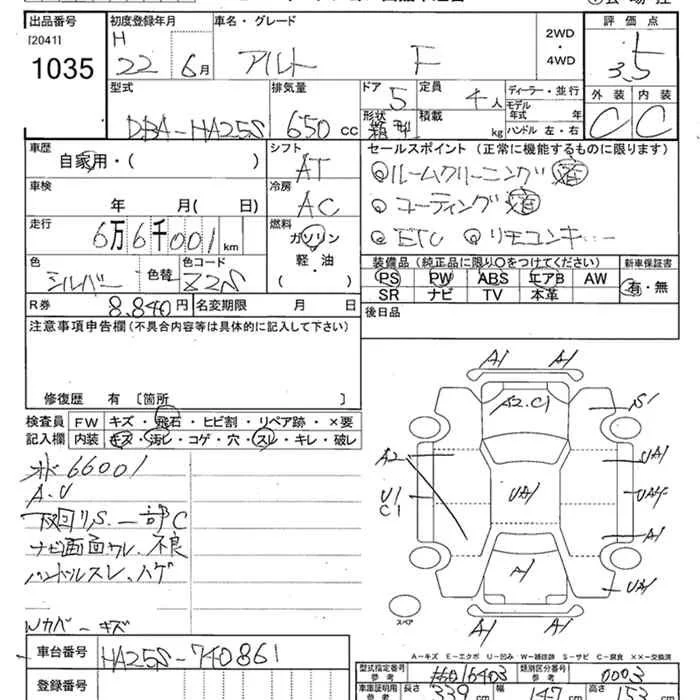 出品番号 初度登録年月 車名・グレード 評価点
[2041] H 2WD
1035 22年 6月 アルト F ・ 4WD 3.5
型式 排気量 ドア 5 定員 4人 ディーラー・並行 外装 内装
DBA-HA25S 650 cc 形状 箱型 積載 kg モデル年式 年 C C
ハンドル 左・右
車歴 シフト セールスポイント (正常に機能するものに限ります)
自家用・( ) AT ルームクリーニング 済
車検 冷房 コーティング 済
年 月( 日) AC ETC リモコンキー
走行 燃料
6万6千001 km ガソリン
色 色替 色コード 軽・油 装備品 (純正品に限り○をつけてください) 新車保証書
シルバー Z2S ( ) PS PW ABS エアB AW 有・無
R券 8.840円 名変期限 月 日 SR ナビ TV 本革
注意事項申告欄 (不具合内容等は具体的に記入して下さい) 後日品
修復歴 有 [箇所 ]
検査員 FW キズ・飛石・ヒビ割・リペア跡・×要
記入欄 内装 キズ・汚レ・コゲ・穴・スレ・キレ・破レ
66001
A.U
下回りS.一部C
ナビ画面ウレ、不良
ハンドルスレ、ハゲ
Wカバーキズ
A1 A1
A2.C1 S1
A2 UA1
U1 UA1 UA4
C1 A1
A1 UA1
スペア
A1 A1
A-キズ E-エクボ U-凹み W-補修跡 S-サビ C-腐食 XX-交換済
車台番号 HA25S-740861
登録番号
型式指定番号 参考 16403 類別区分番号 参考 0003
車庫証明用 参考 長さ 339 cm 幅 147 cm 高さ 153 cm